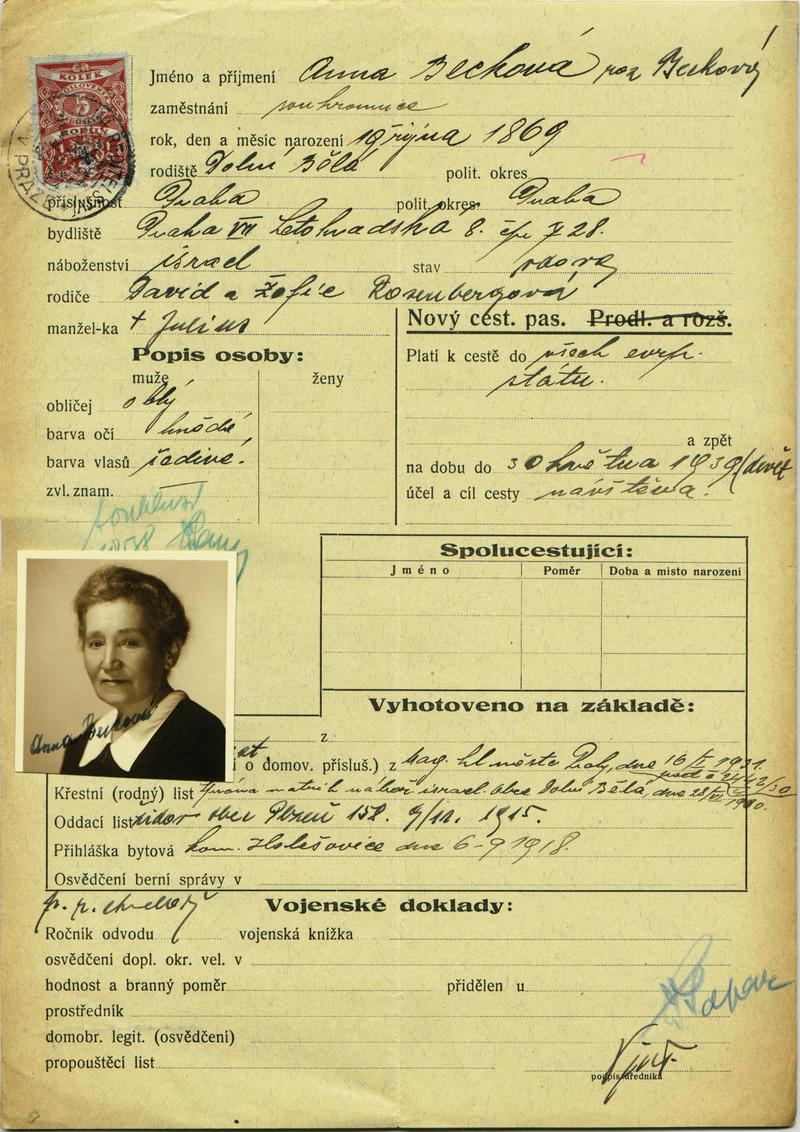 KOLEK
5
KORUN
Jméno a příjmení Anna Becková roz Beckový
zaměstnání soukromnice
rok, den a měsíc narození 19 října 1869
rodiště Dolní Bělá polit. okres
příslušnost Praha polit. okres Praha
bydliště Praha VII Letohradská 8. čp. 728.
náboženství israel stav vdova
rodiče David a Žofie Rosenbergová
manžel-ka † Julius
Nový cest. pas. Prodl. a rozš.
Popis osoby:
muže ženy
obličej oblý
barva očí hnědé
barva vlasů šedivé.
zvl. znam. —
Platí k cestě do všech evrp.
státu.
a zpět
na dobu do 30 května 1939
účel a cíl cesty návštěva.
1938
Anna Becková
Spolucestující:
Jméno Poměr Doba a místo narození
Vyhotoveno na základě:
z
o domov. přísluš.) z Mag. hl. města Prahy, dne
Křestní (rodný) list israel. obce Dolní Bělá, dne
Oddací list židov obec Plzeň 158. 9/11. 1915.
Přihláška bytová kom. Holešovice dne 6-9 1918.
Osvědčení berní správy v
Vojenské doklady:
Ročník odvodu vojenská knížka
osvědčení dopl. okr. vel. v
hodnost a branný poměr přidělen u
prostředník
domobr. legit. (osvědčení)
propouštěcí list
podpis úředníka